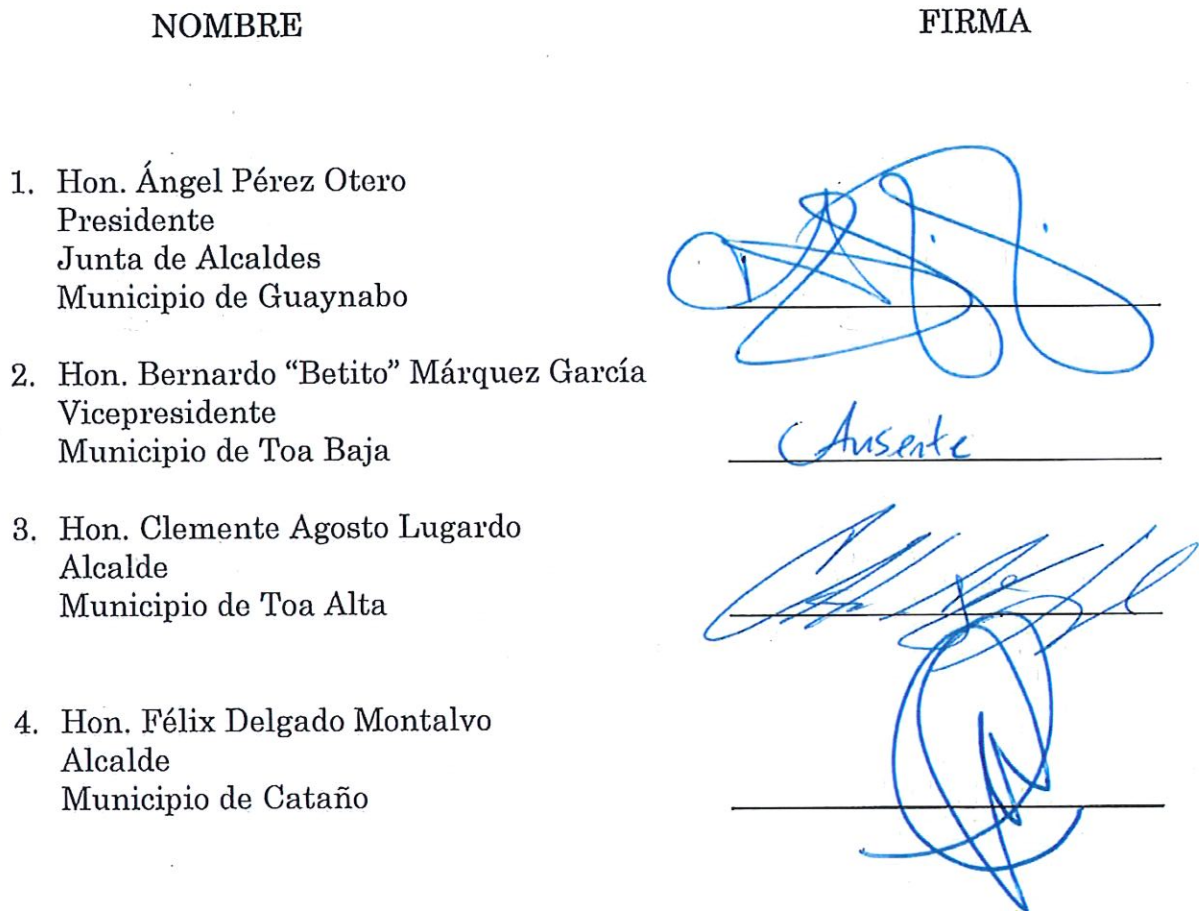 NOMBRE FIRMA
1. Hon. Ángel Pérez Otero
Presidente
Junta de Alcaldes
Municipio de Guaynabo
2. Hon. Bernardo “Betito” Márquez García
Vicepresidente
Municipio de Toa Baja
Ausente
3. Hon. Clemente Agosto Lugardo
Alcalde
Municipio de Toa Alta
4. Hon. Félix Delgado Montalvo
Alcalde
Municipio de Cataño